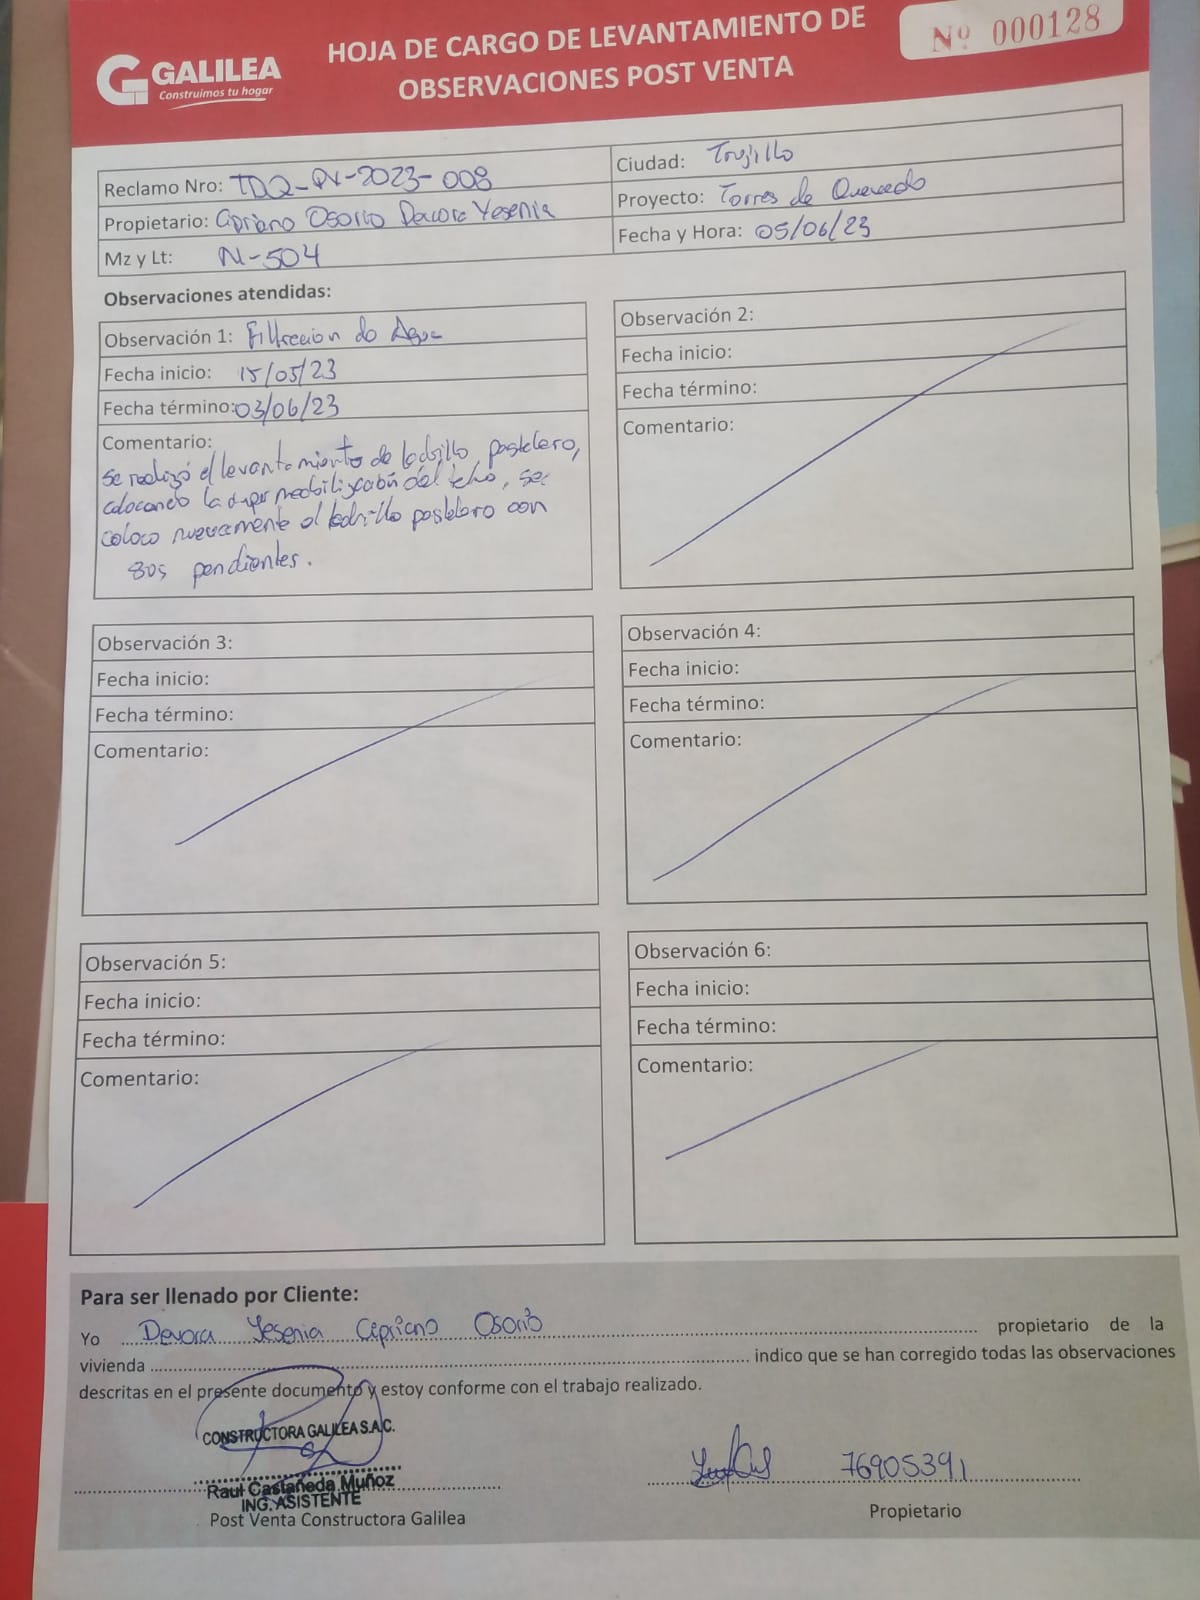 GALILEA
Construimos tu hogar
HOJA DE CARGO DE LEVANTAMIENTO DE
OBSERVACIONES POST VENTA
Nº 000128
Reclamo Nro: TDQ-PV-2023-008
Propietario: Cipriano Osorio Devora Yesenia
Mz y Lt: N-504
Ciudad: Trujillo
Proyecto: Torres de Quevedo
Fecha y Hora: 05/06/23
Observaciones atendidas:
Observación 1: Filtracion de Agua
Fecha inicio: 15/05/23
Fecha término: 03/06/23
Comentario:
se realizó el levantamiento de ladrillo pastelero,
colocando la del techo, se
coloco nuevamente el ladrillo pastelero con
sus pendientes.
Observación 2:
Fecha inicio:
Fecha término:
Comentario:
Observación 3:
Fecha inicio:
Fecha término:
Comentario:
Observación 4:
Fecha inicio:
Fecha término:
Comentario:
Observación 5:
Fecha inicio:
Fecha término:
Comentario:
Observación 6:
Fecha inicio:
Fecha término:
Comentario:
Para ser llenado por Cliente:
Yo Devora Yesenia Cipriano Osorio propietario de la
vivienda indico que se han corregido todas las observaciones
descritas en el presente documento y estoy conforme con el trabajo realizado.
CONSTRUCTORA GALILEA S.A.C.
Raul Castañeda Muñoz
ING. ASISTENTE
Post Venta Constructora Galilea
76905391
Propietario